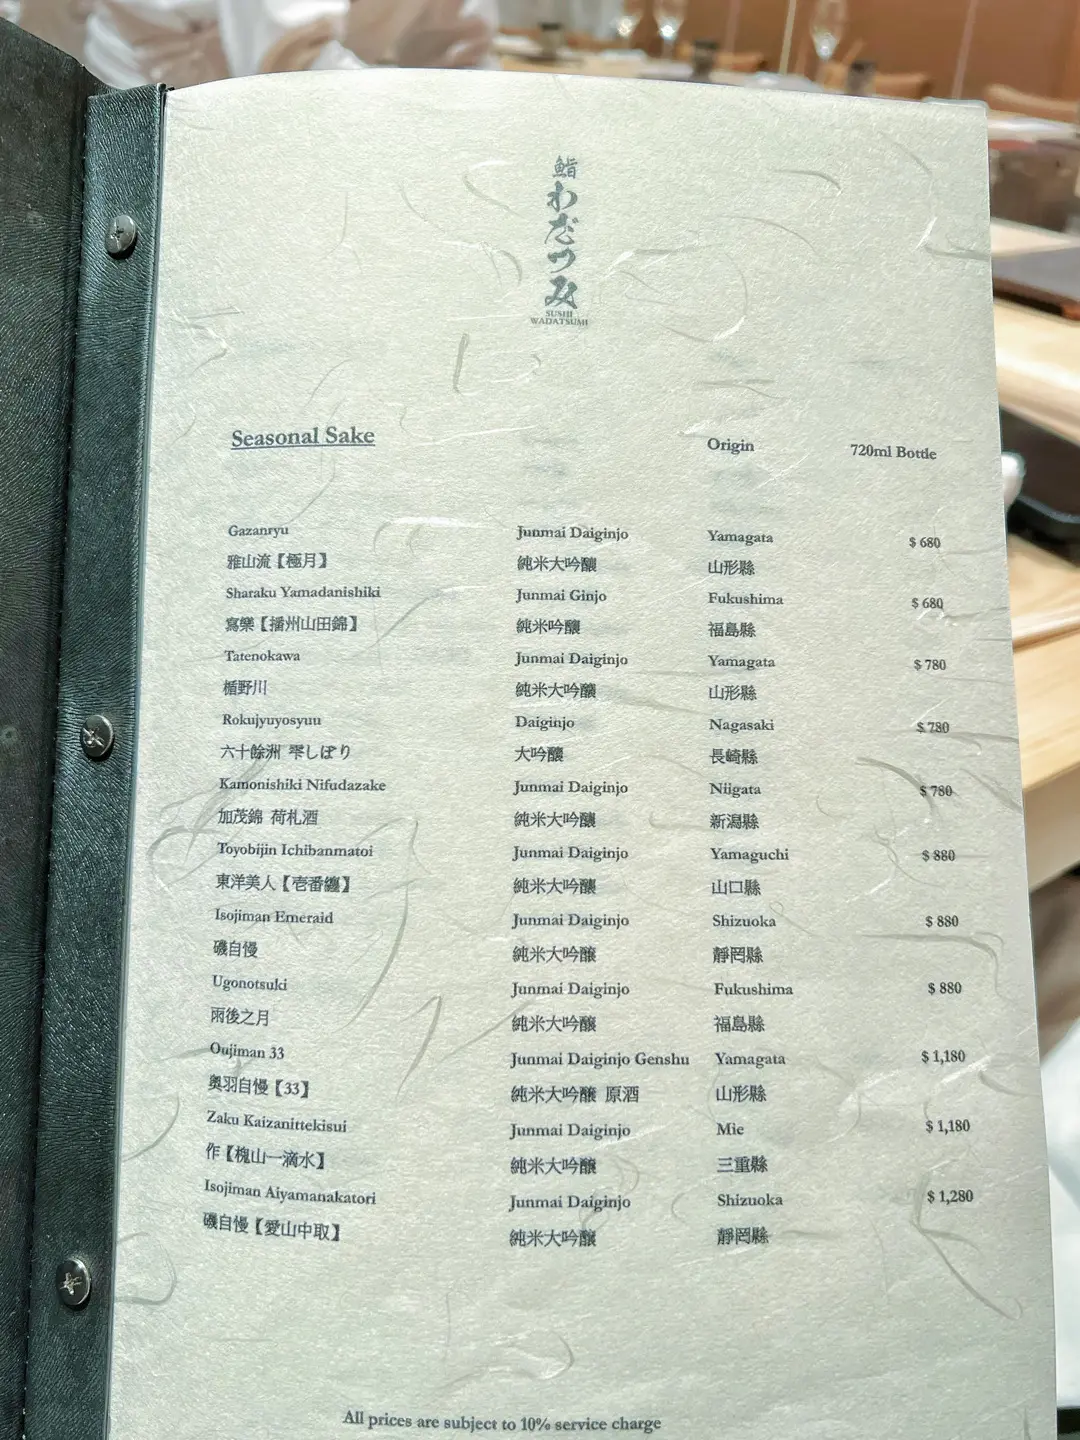 鮨
わだつみ
SUSHI
WADATSUMI
Seasonal Sake Origin 720ml Bottle
Gazanryu Junmai Daiginjo Yamagata $ 680
雅山流【極月】 純米大吟釀 山形縣
Sharaku Yamadanishiki Junmai Ginjo Fukushima $ 680
寫樂【播州山田錦】 純米吟釀 福島縣
Tatenokawa Junmai Daiginjo Yamagata $ 780
楯野川 純米大吟釀 山形縣
Rokujyuyosyuu Daiginjo Nagasaki $ 780
六十餘洲 雫しぼり 大吟釀 長崎縣
Kamonishiki Nifudazake Junmai Daiginjo Niigata $ 780
加茂錦 荷札酒 純米大吟釀 新潟縣
Toyobijin Ichibanmatoi Junmai Daiginjo Yamaguchi $ 880
東洋美人【壱番纏】 純米大吟釀 山口縣
Isojiman Emeraid Junmai Daiginjo Shizuoka $ 880
磯自慢 純米大吟釀 靜罔縣
Ugonotsuki Junmai Daiginjo Fukushima $ 880
雨後之月 純米大吟釀 福島縣
Oujiman 33 Junmai Daiginjo Genshu Yamagata $ 1,180
奥羽自慢【33】 純米大吟釀 原酒 山形縣
Zaku Kaizanittekisui Junmai Daiginjo Mie $ 1,180
作【槐山一滴水】 純米大吟釀 三重縣
Isojiman Aiyamanakatori Junmai Daiginjo Shizuoka $ 1,280
磯自慢【愛山中取】 純米大吟釀 靜罔縣
All prices are subject to 10% service charge